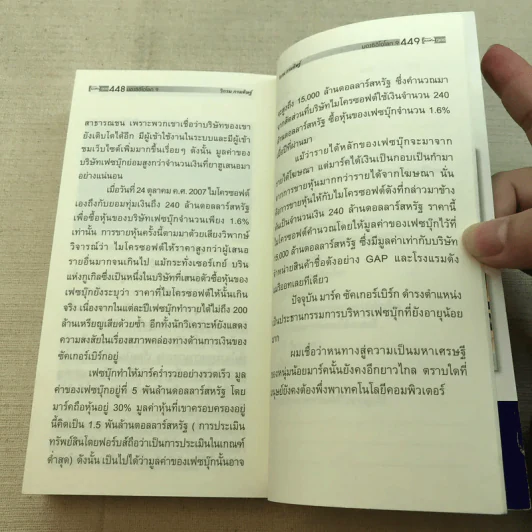 448
สาธารณชน เพราะพวกเขาเชื่อว่าบริษัทของเขา
ยังเติบโตได้อีก มีผู้เข้าใช้งานในระบบและมีผู้เข้า
ชมเว็บไซต์เพิ่มมากขึ้นเรื่อยๆ ดังนั้น มูลค่าของ
บริษัทเฟซบุ๊กย่อมสูงกว่าจำนวนเงินที่ยาฮูเสนอมา
อย่างแน่นอน
เมื่อวันที่ 24 ตุลาคม ค.ศ. 2007 ไมโครซอฟต์
เองถึงกับยอมทุ่มเงินถึง 240 ล้านดอลลาร์สหรัฐ
เพื่อซื้อหุ้นของบริษัทเฟซบุ๊กจำนวนเพียง 1.6%
เท่านั้น การขายหุ้นครั้งนี้ตามมาด้วยเสียงวิพากษ์
วิจารณ์ว่า ไมโครซอฟต์ให้ราคาสูงกว่าผู้เสนอ
รายอื่นมากจนเกินไป แม้กระทั่งเซอร์เกย์ บริน
แห่งกูเกิลซึ่งเป็นหนึ่งในบริษัทที่เสนอตัวซื้อหุ้นของ
เฟซบุ๊กยังระบุว่า ราคาที่ไมโครซอฟต์ให้นั้นเกิน
จริง เนื่องจากในแต่ละปีเฟซบุ๊กทำรายได้ไม่ถึง 200
ล้านเหรียญเสียด้วยซ้ำ อีกทั้งนักวิเคราะห์ยังแสดง
ความสงสัยในเรื่องสภาพคล่องทางด้านการเงินของ
ซัคเกอร์เบิร์กอยู่
เฟซบุ๊กทำให้มาร์คร่ำรวยอย่างรวดเร็ว มูล
ค่าของเฟซบุ๊กอยู่ที่ 5 พันล้านดอลลาร์สหรัฐ โดย
มาร์คถือหุ้นอยู่ 30% มูลค่าหุ้นที่เขาครอบครองอยู่
นี้คิดเป็น 1.5 พันล้านดอลลาร์สหรัฐ ( การประเมิน
ทรัพย์สินโดยฟอร์บส์ถือว่าเป็นการประเมินในเกณฑ์
ต่ำสุด) ดังนั้น เป็นไปได้ว่ามูลค่าของเฟซบุ๊กนั้นอาจ
449
จะสูงถึง 15,000 ล้านดอลลาร์สหรัฐ ซึ่งคำนวณมา
จากสัดส่วนที่บริษัทไมโครซอฟต์ใช้เงินจำนวน 240
ล้านดอลลาร์สหรัฐ ซื้อหุ้นของเฟซบุ๊กจำนวน 1.6%
เมื่อปีที่ผ่านมา
แม้ว่ารายได้หลักของเฟซบุ๊กจะมาจาก
รายได้โฆษณา แต่มาร์คได้เงินเป็นกอบเป็นกำมา
จากการขายหุ้นมากกว่ารายได้จากโฆษณา นั่น
คือการขายหุ้นให้กับไมโครซอฟต์ดังที่กล่าวมาข้าง
ต้นเป็นจำนวนเงิน 240 ล้านดอลลาร์สหรัฐ ราคานี้
ไมโครซอฟต์คำนวณโดยให้มูลค่าของเฟซบุ๊กไว้ที่
15,000 ล้านดอลลาร์สหรัฐ ซึ่งมีมูลค่าเท่ากับบริษัท
จำหน่ายสินค้าชื่อดังอย่าง GAP และโรงแรมดัง
แมริออทเลยทีเดียว
ปัจจุบัน มาร์ค ซัคเกอร์เบิร์ก ดำรงตำแหน่ง
เป็นประธานกรรมการบริหารเฟซบุ๊กที่ยังอายุน้อย
มาก
ผมเชื่อว่าหนทางสู่ความเป็นมหาเศรษฐี
ของหนุ่มน้อยมาร์คนั้นยังคงอีกยาวไกล ตราบใดที่
มนุษย์ยังคงต้องพึ่งพาเทคโนโลยีคอมพิวเตอร์